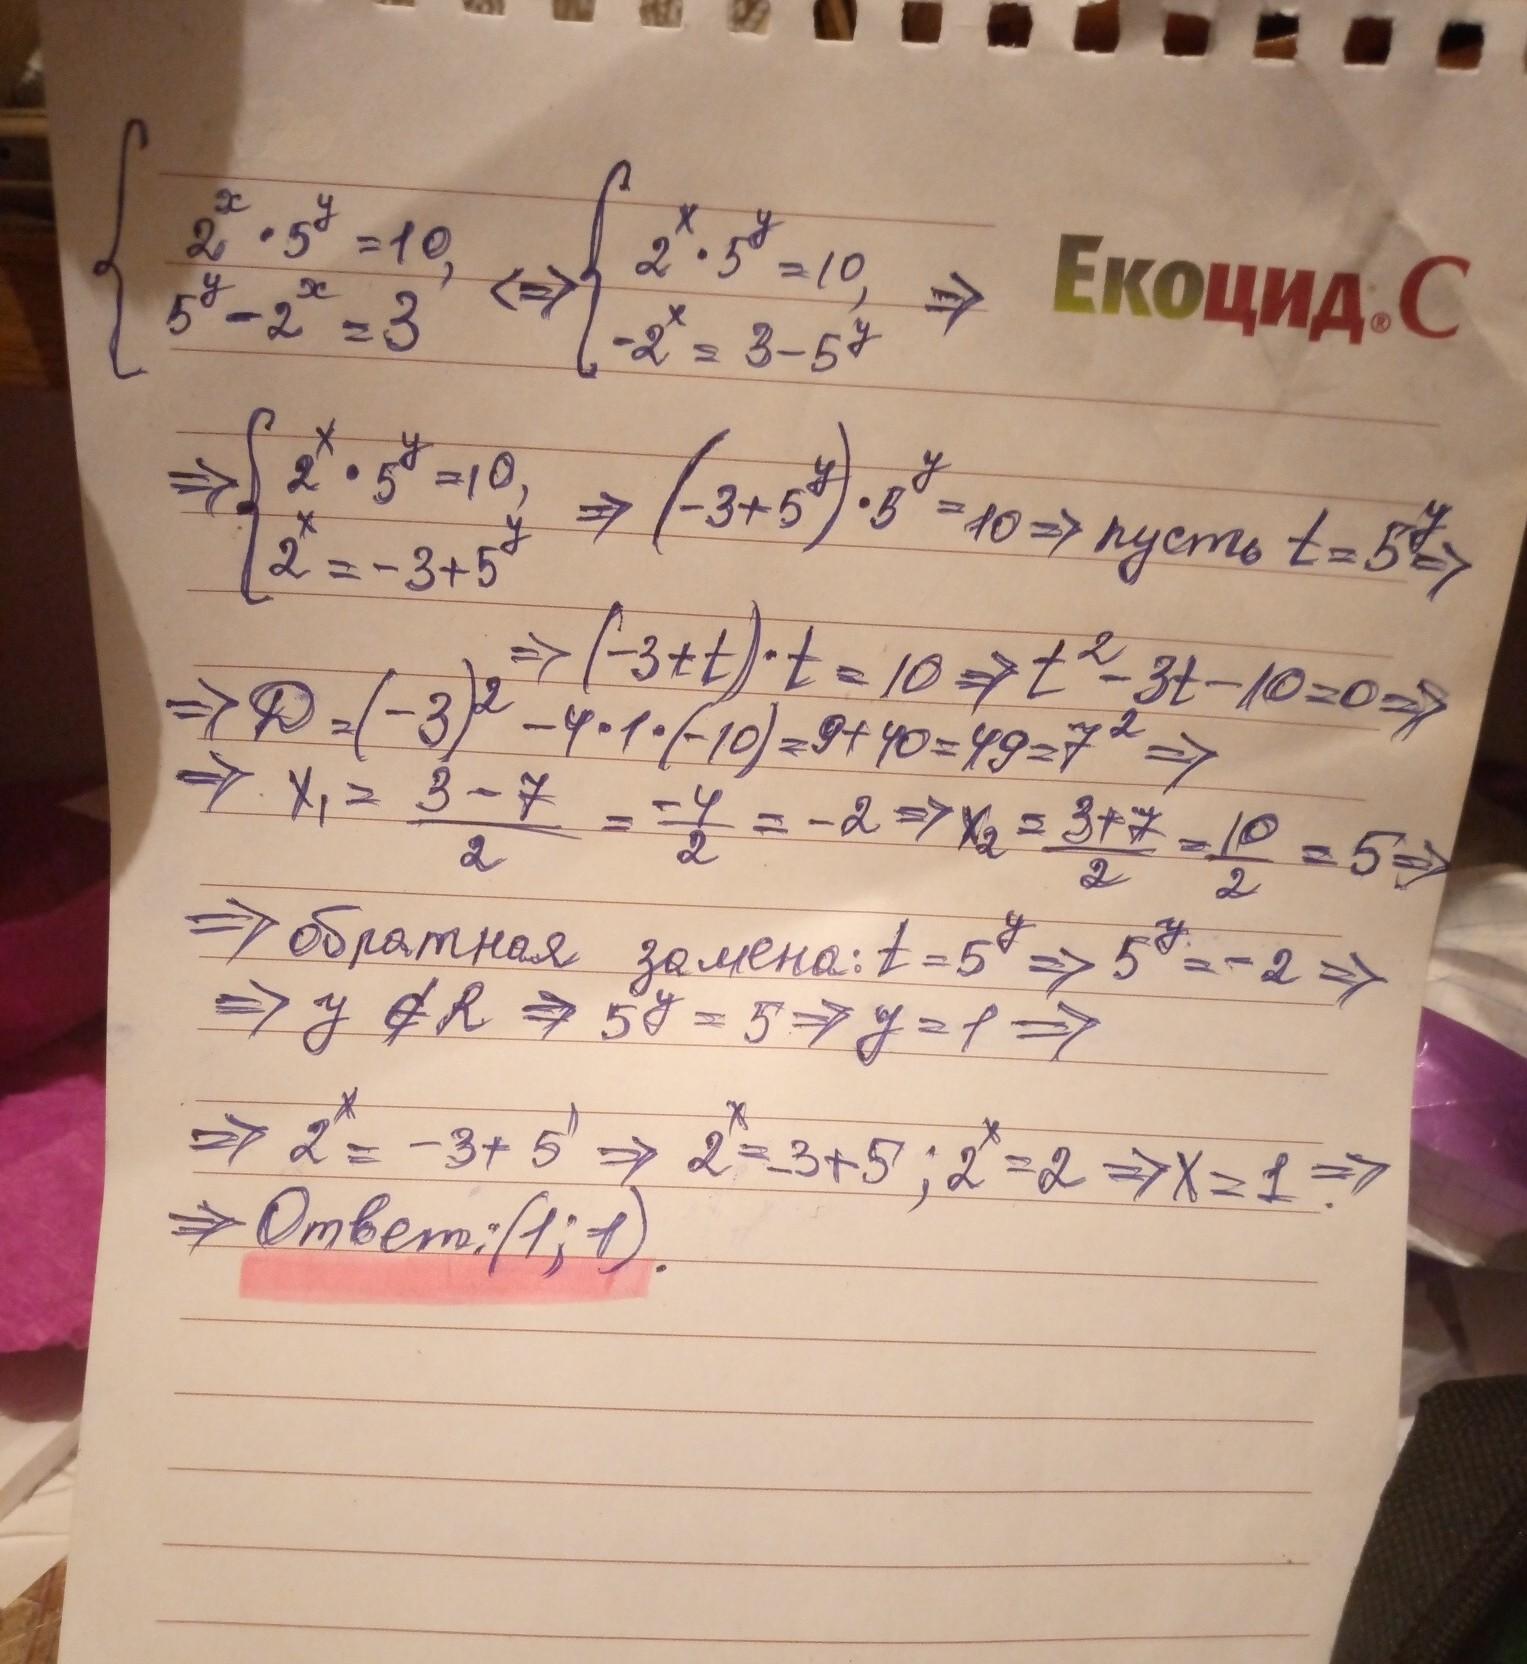 { 2^x · 5^y = 10, <=> { 2^x · 5^y = 10, =>
5^y - 2^x = 3 -2^x = 3 - 5^y
Екоцид® С
=> { 2^x · 5^y = 10, => (-3 + 5^y) · 5^y = 10 => пусть t = 5^y =>
2^x = -3 + 5^y
=> (-3 + t) · t = 10 => t^2 - 3t - 10 = 0 =>
=> D = (-3)^2 - 4·1·(-10) = 9 + 40 = 49 = 7^2 =>
=> x₁ = (3 - 7)/2 = -4/2 = -2 => x₂ = (3 + 7)/2 = 10/2 = 5 =>
=> обратная замена: t = 5^y => 5^y = -2 =>
=> y ∉ R => 5^y = 5 => y = 1 =>
=> 2^x = -3 + 5^1 => 2^x = -3 + 5; 2^x = 2 => x = 1. =>
=> Ответ: (1; 1).